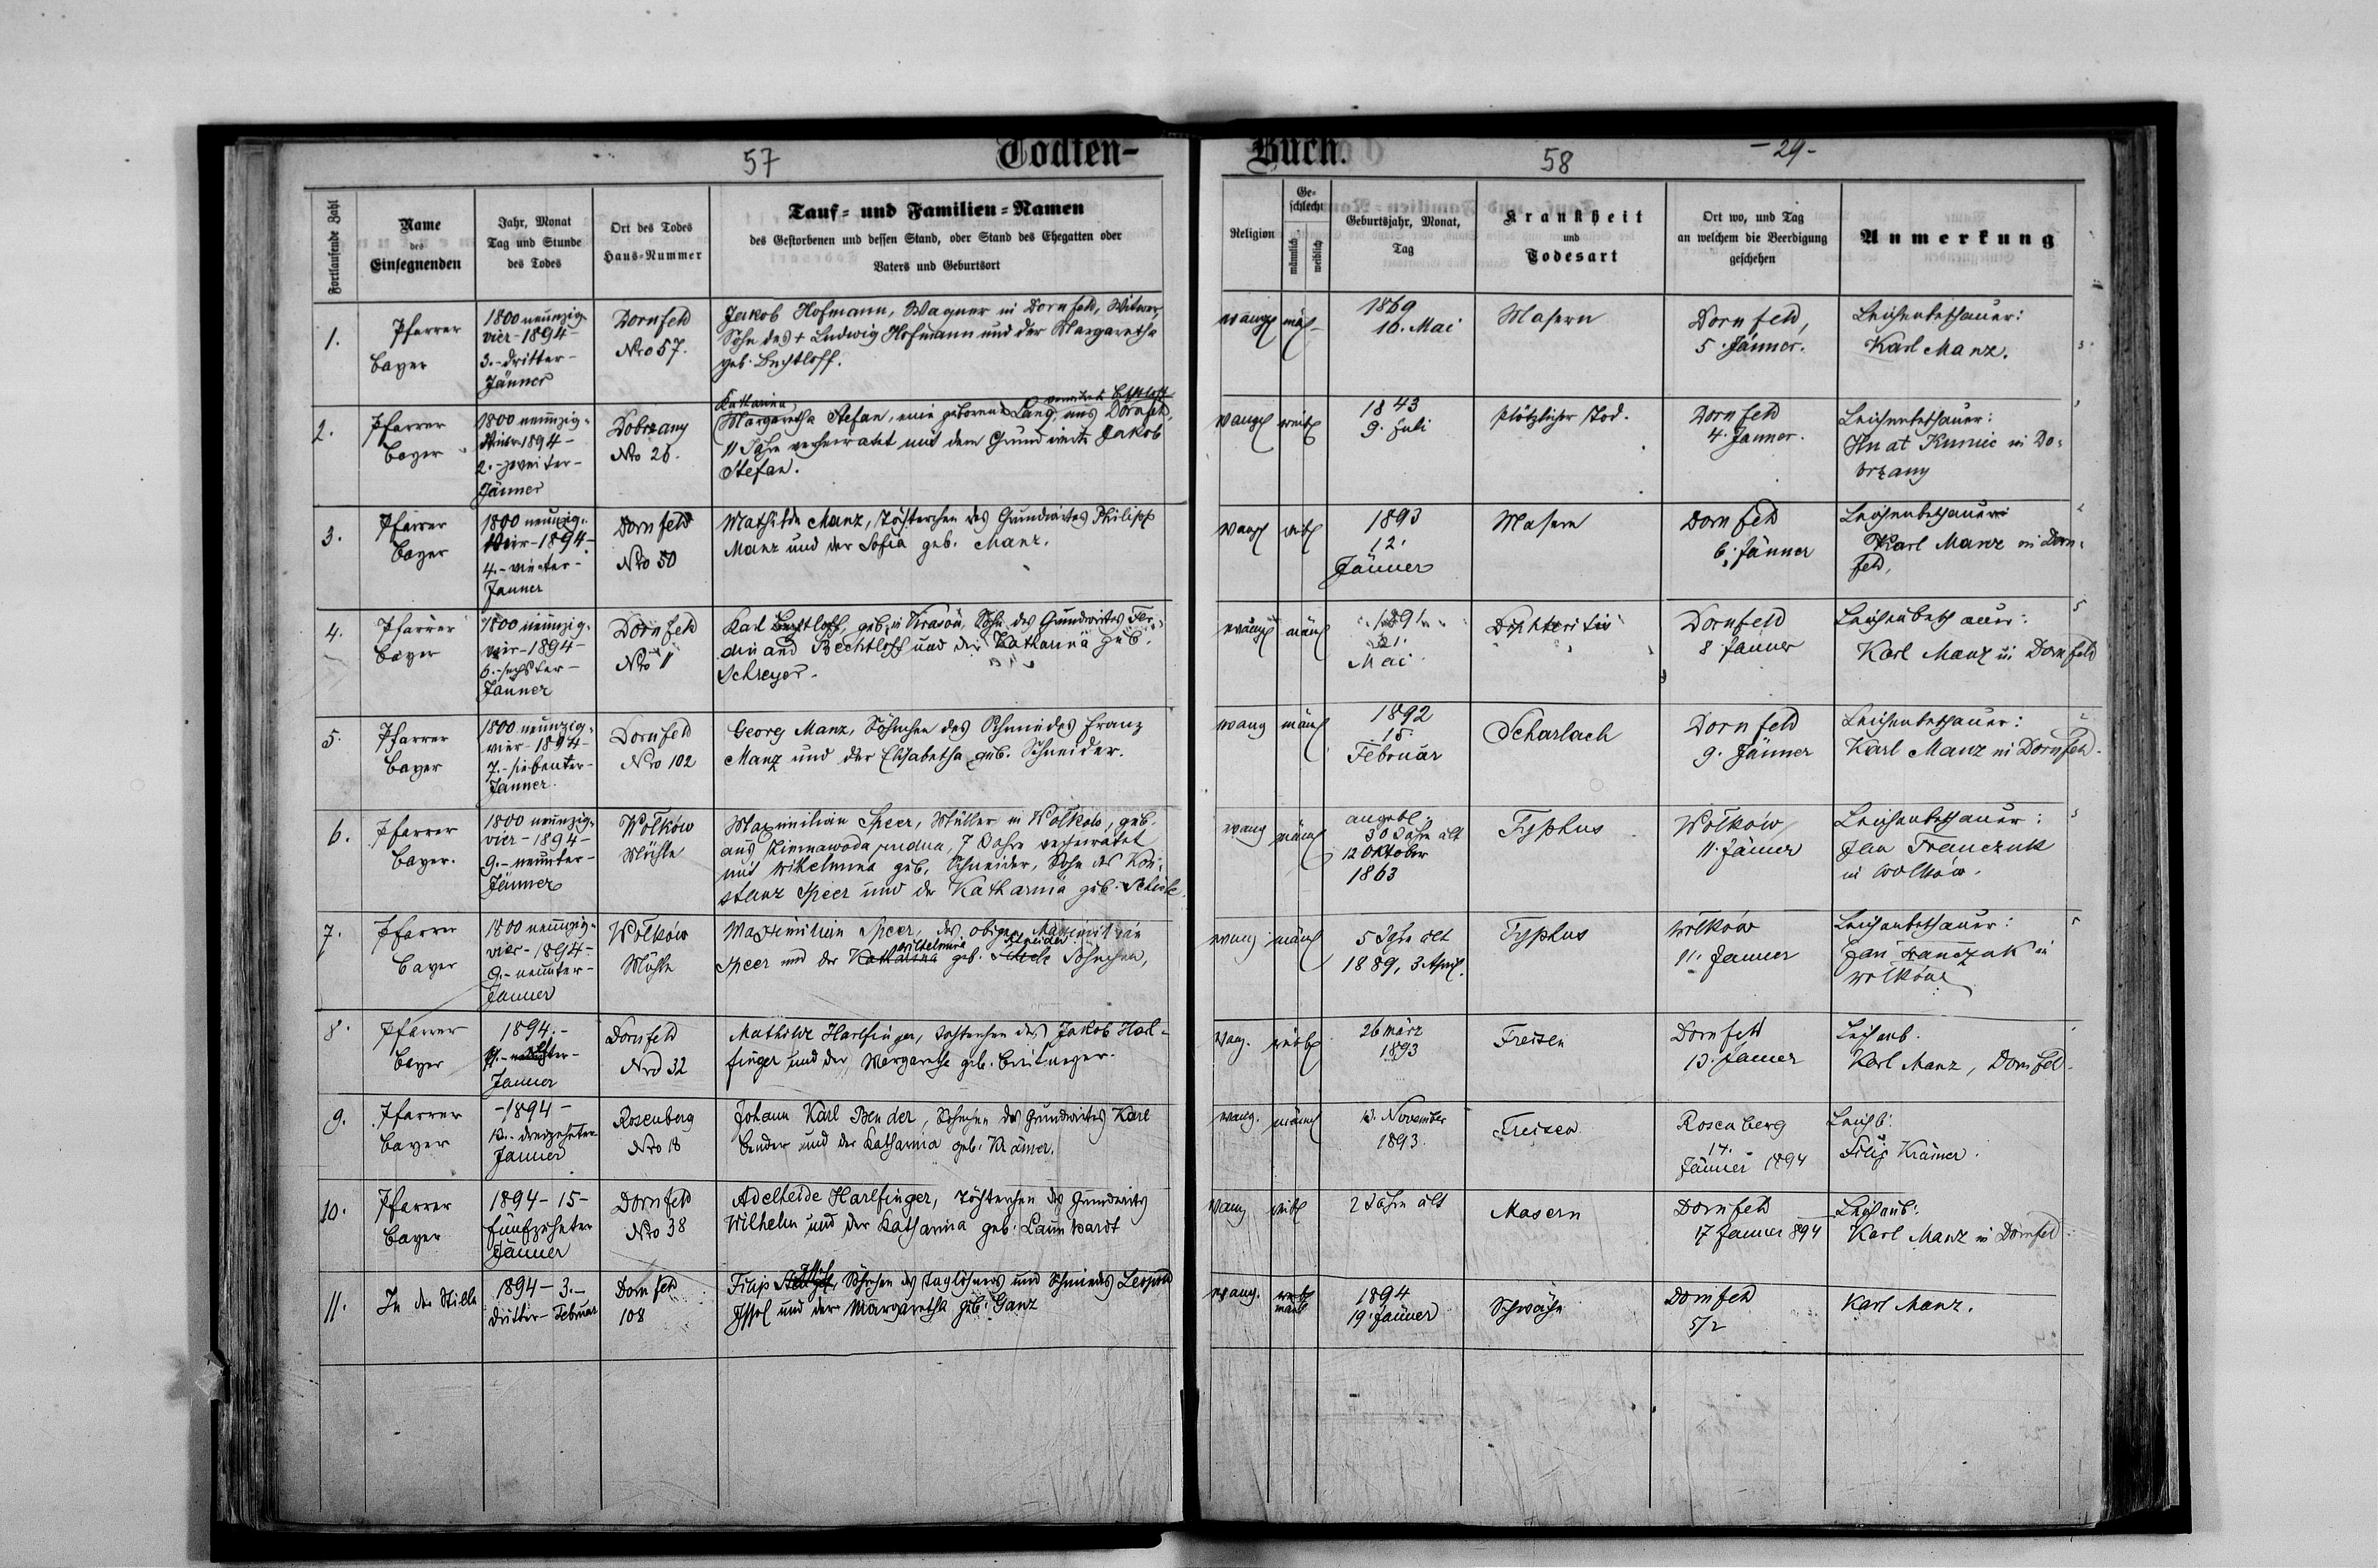 57
Todten-
Buch.
58
- 29 -
Fortlaufende Zahl
Name
des
Einsegnenden
Jahr, Monat
Tag und Stunde
des Todes
Ort des Todes
Haus-Nummer
Tauf- und Familien-Namen
des Gestorbenen und dessen Stand, oder Stand des Ehegatten oder
Vaters und Geburtsort
Religion
Ge-
schlecht
männlich
weiblich
Geburtsjahr, Monat,
Tag
Krankheit
und
Todesart
Ort wo, und Tag
an welchem die Beerdigung
geschehen
Anmerkung
1.
Pfarrer
Bayer
1800 neunzig-
vier - 1894 -
3. - dritter -
Jänner
Dornfeld
Nro 57.
Jakob Hofmann, Wagner in Dornfeld, Witwer,
Sohn des + Ludwig Hofmann und der Margaretha
geb. Bechtloff.
evang
mänl
1869
16. Mai
Masern
Dornfeld,
5. Jänner.
Leichenbeschauer:
Karl Manz.
2.
Pfarrer
Bayer
1800 neunzig-
vier 1894 -
2. - zweiter -
Jänner
Dobrzany
Nro 26.
Katharina verwitwet Bechtloff
Margaretha Stefan, eine geborene Lang aus Dornfeld,
11 Jahre verheiratet mit dem Grundwirte Jakob
Stefan.
evangl
weibl
1843
9. Juli
plötzlicher Tod.
Dornfeld
4. Jänner.
Leichenbeschauer:
Hnat Kunic in Do-
brzany
3.
Pfarrer
Bayer
1800 neunzig-
vier - 1894 -
4. - vierter -
Jänner
Dornfeld
Nro 50
Mathilde Manz, Töchterchen des Grundwirtes Philipp
Manz und der Sofia geb. Manz.
evangl
weibl
1893
12.
Jänner
Masern
Dornfeld
6. Jänner
Leichenbeschauer
Karl Manz in Dorn-
feld,
4.
Pfarrer
Bayer
1800 neunzig-
vier - 1894 -
6. - sechster -
Jänner
Dornfeld
Nro 11
Karl Bechtloff, geb. in Krasów, Sohn des Grundwirtes Fer-
dinand Bechtloff und der Katharina geb.
Schreyer.
evangl
mänl
1891
21.
Mai
Diphteritis
Dornfeld
8 Jänner
Leichenbeschauer:
Karl Manz in Dornfeld
5.
Pfarrer
Bayer
1800 neunzig-
vier - 1894 -
7. - siebenter -
Jänner.
Dornfeld
Nro 102
Georg Manz, Söhnchen des Schmiedes Franz
Manz und der Elisabetha geb. Schneider.
evang
mänl
1892
15.
Februar
Scharlach
Dornfeld
9. Jänner
Leichenbeschauer:
Karl Manz in Dornfeld.
6.
Pfarrer
Bayer.
1800 neunzig-
vier - 1894 -
9. - neunter -
Jänner
Wolków
Mühle
Maximilian Speer, Müller in Wolków, geb.
aus Zimnawoda, 7 Jahre verheiratet
mit Wilhelmina geb. Schneider, Sohn des Kon-
stanz Speer und der Katharina geb.
evang
mänl
angebl.
30 Jahre alt
12 Oktober
1863
Typhus
Wolków
11. Jänner
Leichenbeschauer:
Jan Franczuk
in Wolków.
7.
Pfarrer
Bayer
1800 neunzig-
vier - 1894 -
9. - neunter -
Jänner
Wolków
Mühle
Maximilian Speer, des obigen Maximilian
Wilhelmina Schneider
Speer und der Katharina geb. Söhnchen,
evang
mänl
5 Jahre alt
1889, 3 April.
Typhus
Wolków
11. Jänner
Leichenbeschauer:
Jan Franczuk in
Wolków
8.
Pfarrer
Bayer
1894. -
Jänner
Dornfeld
Nro 32
Mathilde Harlfinger, Töchterchen des Jakob Harl-
finger und der Margarethe geb. Breitmayer.
evang.
weibl
26 März
1893
Freisen
Dornfeld
13. Jänner
Leichenb.
Karl Manz, Dornfeld.
9.
Pfarrer
Bayer
- 1894 -
13. - dreizehnter
Jänner
Rosenberg
Nro 18
Johann Karl Bender, Söhnchen des Grundwirtes Karl
Bender und der Katharina geb. Krämer.
evang.
mänl
12. November
1893.
Freisen
Rosenberg
14.
Jänner 1894
Leichb.
Filip Krämer.
10.
Pfarrer
Bayer
1894 - 15 -
fünfzehnter
Jänner
Dornfeld
Nro 38
Adelheide Harlfinger, Töchterchen des Grundwirts
Wilhelm und der Katharina geb. Launhardt
evang
weibl
2 Jahre alt
Masern
Dornfeld
17 Jänner 894
Leichenb.
Karl Manz in Dornfeld.
11.
In der Stille
1894 - 3. -
dritter - Februar
Dornfeld
108
Filip Söhnchen des Taglöhners und Schmieds Leopold
Issel und der Margaretha geb. Ganz
evang.
weibl
mänl
1894
19. Jänner
Schwäche
Dornfeld
5/2
Karl Manz.